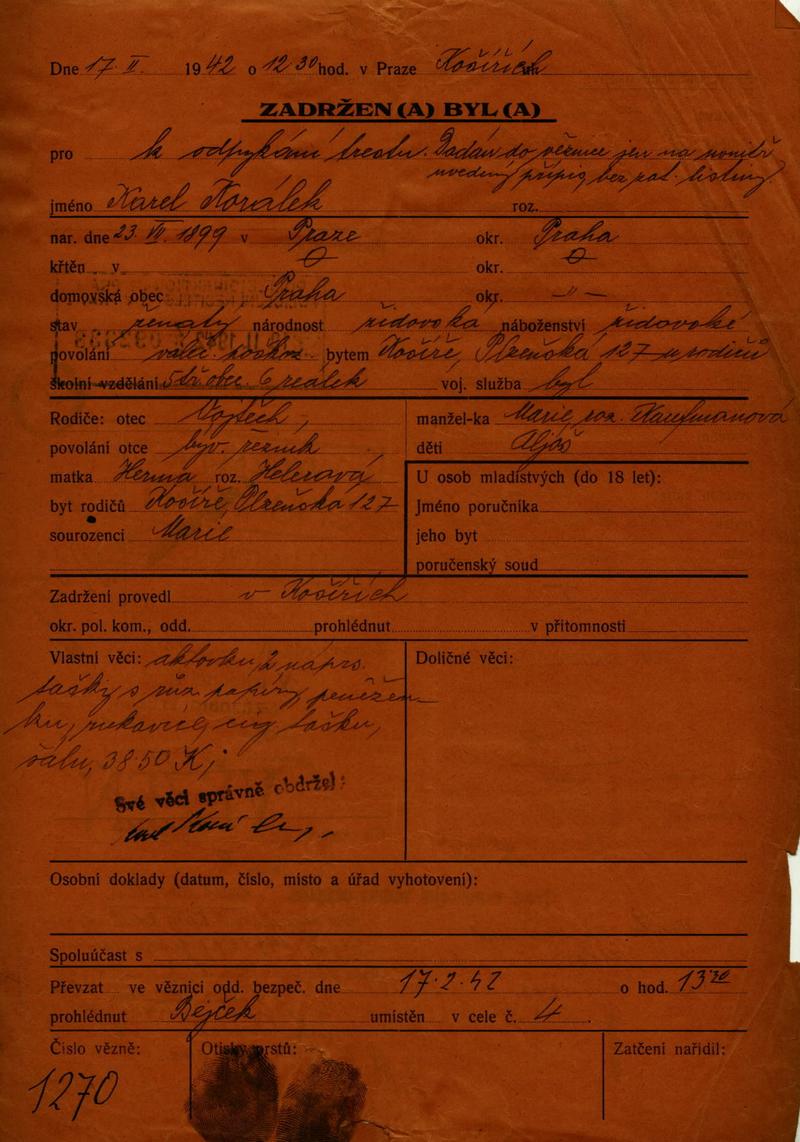 Dne 17. II. 1942 o 12 30 hod. v Praze Košířích
ZADRŽEN(A) BYL(A)
pro k odpykání trestu. Dodán do věznice jen na
uvedený přípis, bez zat. listiny.
jméno Karel Korálek roz.
nar. dne 23. VII. 1899 v Praze okr. Praha
křtěn v okr.
domovská obec Praha okr. -"-
stav ženatý národnost židovská náboženství židovské
povolání bytem Košíře, Plzeňská 127 u rodičů
školní vzdělání 5 tř. obec. 6 reálek voj. služba byl
Rodiče: otec Vojtěch, manžel-ka Marie, roz. Kaufmanová
povolání otce býv. řezník děti
matka Herma roz. Helerová U osob mladistvých (do 18 let):
byt rodičů Košíře, Plzeňská 127 Jméno poručníka
sourozenci Marie jeho byt
poručenský soud
Zadržení provedl v Košířích
okr. pol. kom., odd. prohlédnut v přítomnosti
Vlastní věci: aktovku, 2 náprs. Doličné věci:
tašky s růz. papíry, peněžen-
ku, rukavice, cig. tašku,
šálu, 38·50 K,
Své věci správně obdržel:
Osobní doklady (datum, číslo, místo a úřad vyhotovení):
Spoluúčast s
Převzat ve věznici odd. bezpeč. dne 17·2·42 o hod. 13 30
prohlédnut Bejček umístěn v cele č. 4
Číslo vězně: Otisky prstů: Zatčení nařídil:
1270